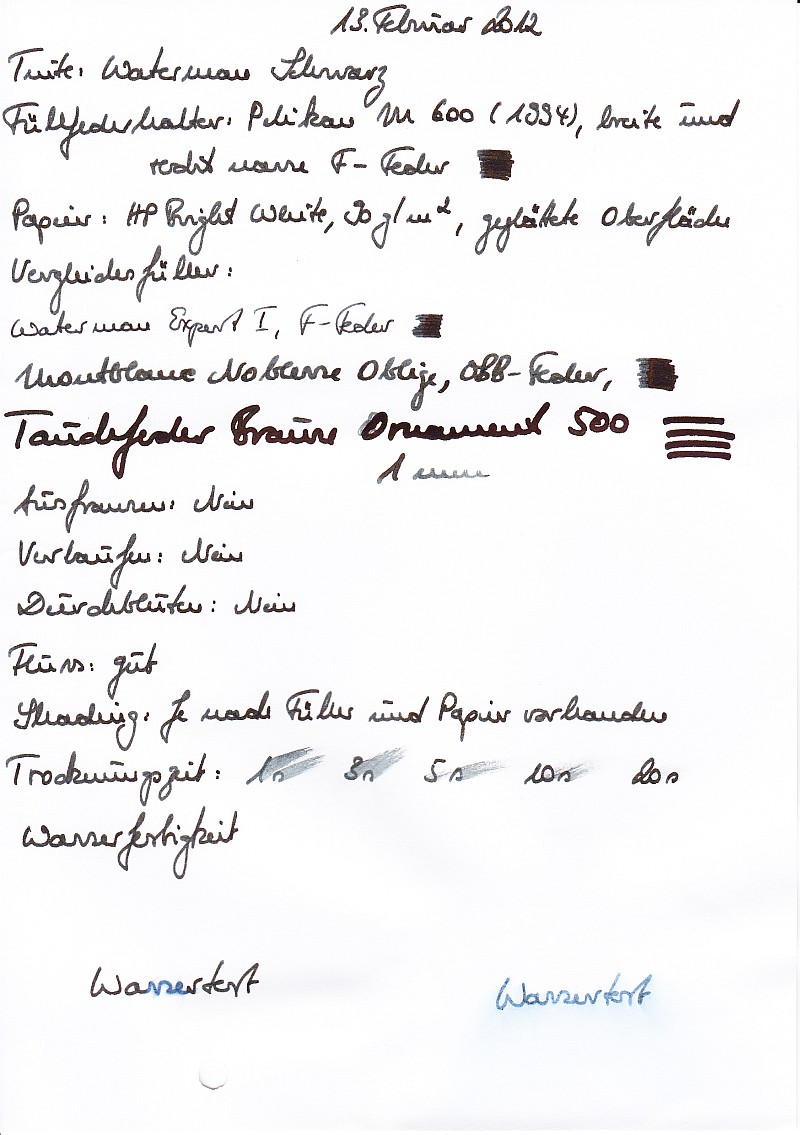 13. Februar 2012
Tinte: Waterman Schwarz
Füllfederhalter: Pelikan M 600 (1994), breite und
recht nasse F-Feder
Papier: HP Bright White, 90 g/m², geglättete Oberfläche
Vergleichsfüller:
Waterman Expert I, F-Feder
Montblanc Noblesse Oblige, OBB-Feder,
Tauchfeder Brause Ornament 500
1 mm
Ausfransen: Nein
Verlaufen: Nein
Durchbluten: Nein
Fluss: gut
Shading: Je nach Füller und Papier vorhanden
Trocknungszeit: 1s 3s 5s 10s 20s
Wasserfestigkeit
Wassertest Wassertest